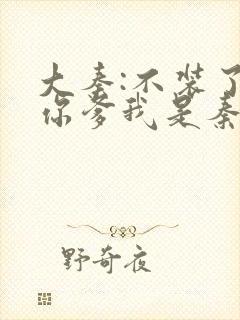 大秦:不装了
你爹我是秦
野奇夜